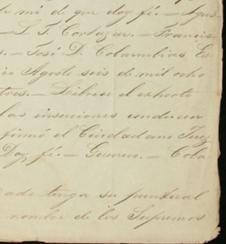 de mi de que doy fé. — Igna
— L. F. Cortazar. — Francis
— José D. Colambias Es
Agosto seis de mil ocho
tres. — Líbrese el exhorto
las inserciones conducen
firmó el Ciudadano Juez
Doy fé. — Guerra. — Coba
tenga su puntual
nombre de los Supremos